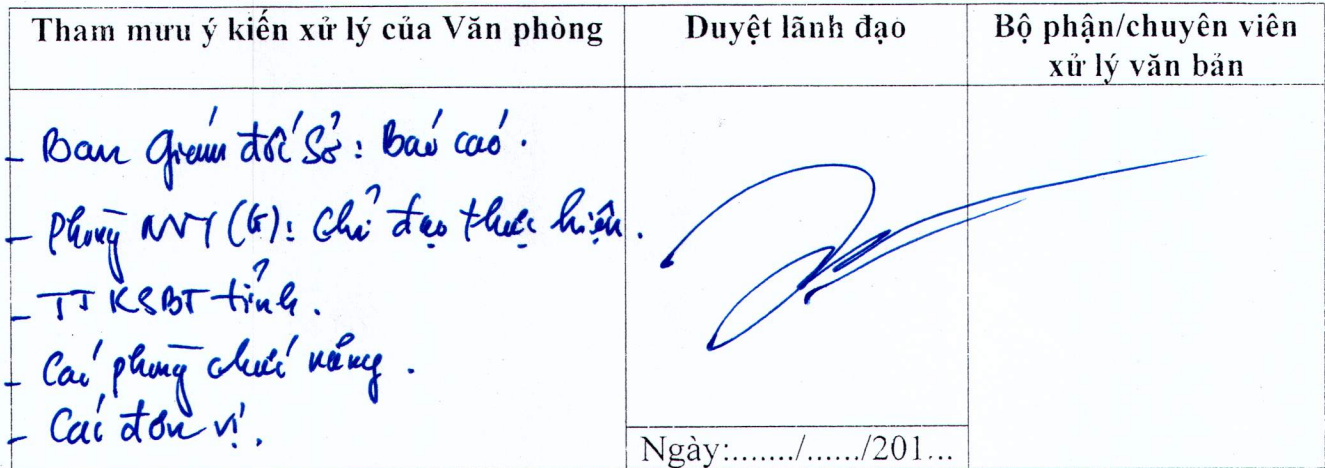 Tham mưu ý kiến xử lý của Văn phòng
Duyệt lãnh đạo
Bộ phận/chuyên viên
xử lý văn bản
- Ban Giám đốc Sở: Báo cáo.
- Phòng NVY (G): Chỉ đạo thực hiện.
- TT KSBT tỉnh.
- Các phòng chức năng.
- Các đơn vị.
Ngày:......../....../201...